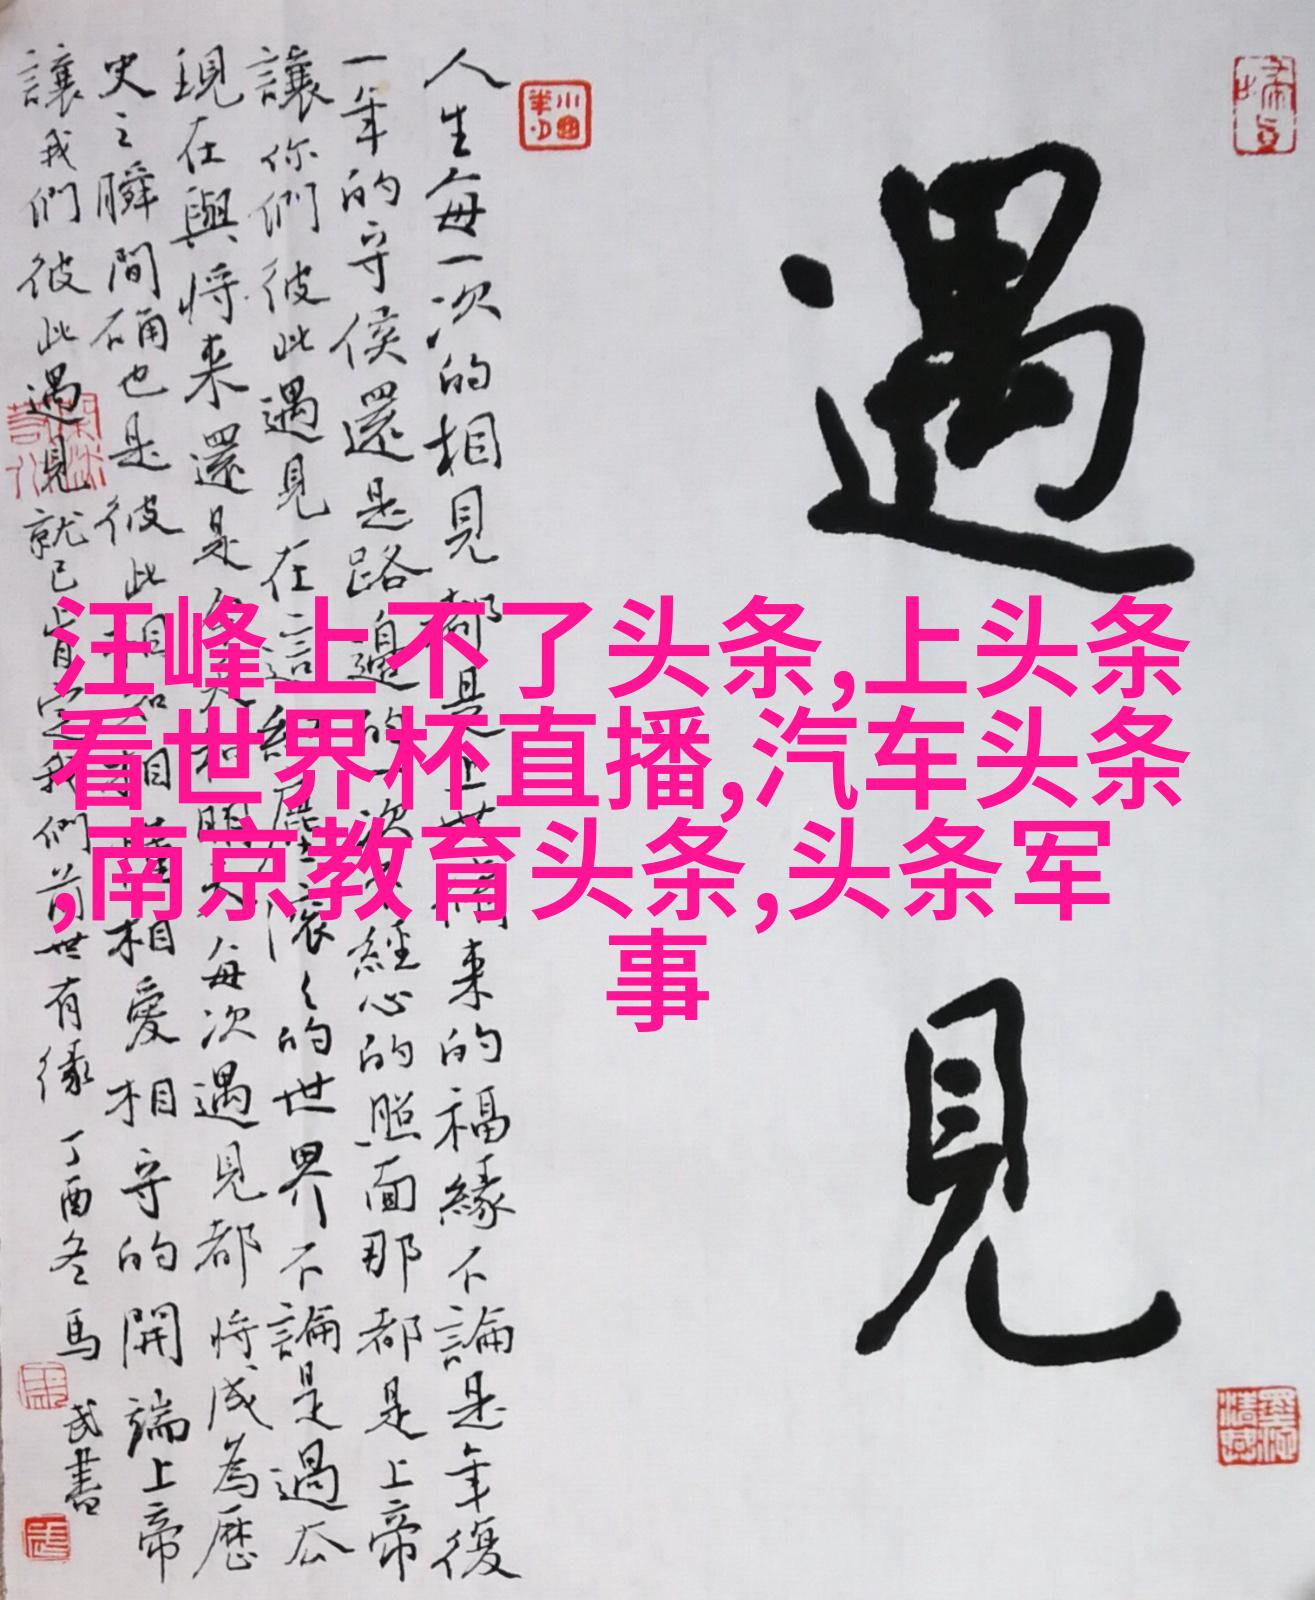 汪峰上不了头条,上头条
看世界杯直播,汽车头条
,南京教育头条,头条军
事
遇見
人生每一次的相見都是上世修来的福緣不論是年復
一年的守侯還是路邊的一次不經心的照面那都是上帝
讓你們彼此遇見在這紅塵滾々的世界不論是過去
現在與將来還是今天和明天每次遇見都將成為歷
史之瞬間确也是彼此相相愛相守的開端上帝
讓我們彼此遇見就已肯定我們前世有緣 丁酉冬馬武書